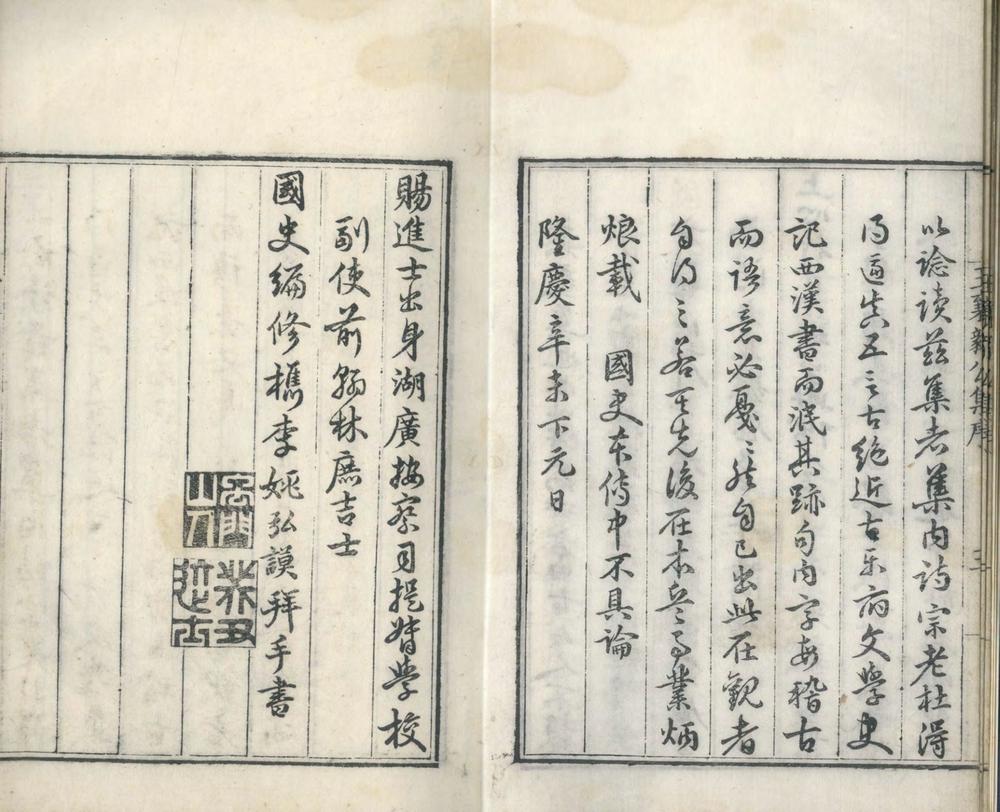 以諗读兹集者集内诗宗老杜得
得逼真五言古絶近古乐府文學史
記西漢書而泯其跡句内字每稽古
而语意必戛戛然自己出此在觀者
自得之若
先後在本兵事業炳
烺載 國史本傳中不具論
隆慶辛未下元日
賜進士出身湖廣按察司提督學校
副使前翰林庶吉士
國史編修檇李姚弘謨拜手書
癸丑進士
王襄新公集序
三